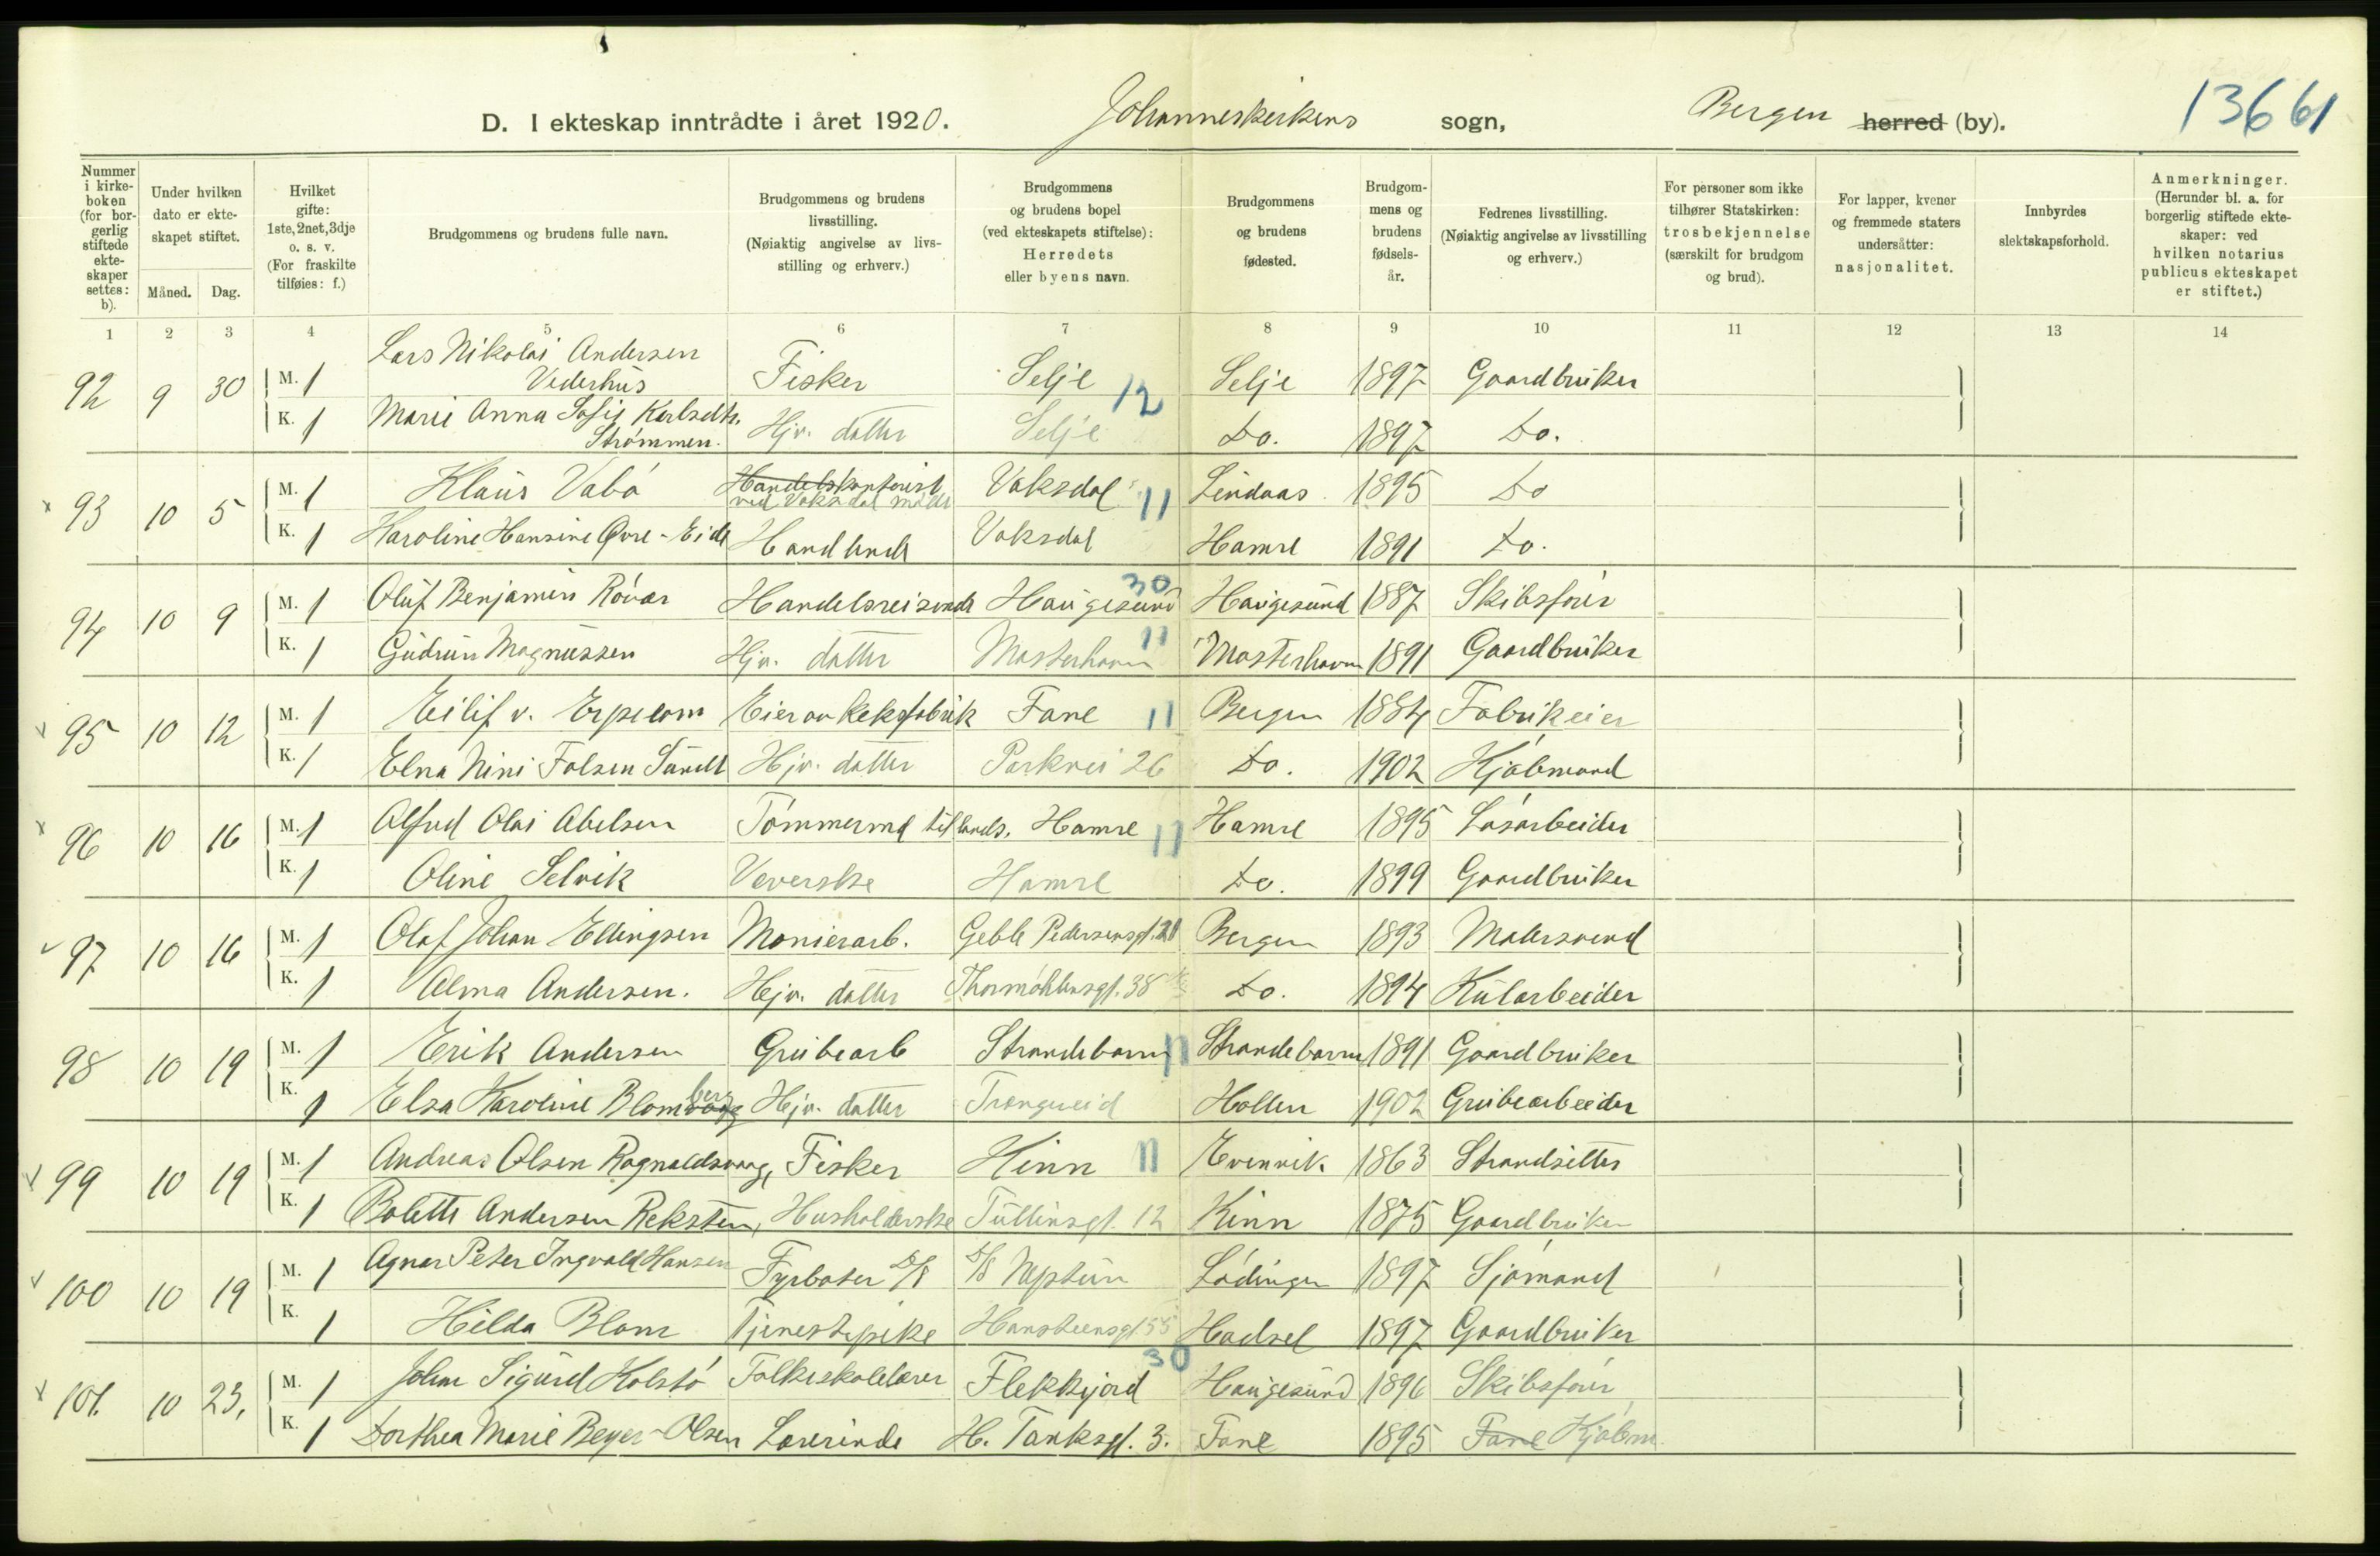 D. I ekteskap inntrådte i året 1920. Johanneskirkens sogn, Bergen herred (by). 13661
Nummer i kirke-boken (for bor-gerlig stiftede ekte-skaper settes: b).
Under hvilken dato er ekte-skapet stiftet.
Måned. Dag.
Hvilket gifte: 1ste, 2net, 3dje o. s. v. (For fraskilte tilføies: f.)
Brudgommens og brudens fulle navn.
Brudgommens og brudens livsstilling. (Nøiaktig angivelse av livs-stilling og erhverv.)
Brudgommens og brudens bopel (ved ekteskapets stiftelse): Herredets eller byens navn.
Brudgommens og brudens fødested.
Brudgom-mens og brudens fødsels-år.
Fedrenes livsstilling. (Nøiaktig angivelse av livsstilling og erhverv.)
For personer som ikke tilhører Statskirken: trosbekjennelse (særskilt for brudgom og brud).
For lapper, kvener og fremmede staters undersåtter: nasjonalitet.
Innbyrdes slektskapsforhold.
Anmerkninger. (Herunder bl. a. for borgerlig stiftede ekte-skaper: ved hvilken notarius publicus ekteskapet er stiftet.)
1 2 3 4 5 6 7 8 9 10 11 12 13 14
92 9 30 M. 1 Lars Nikolai Andersen Vederhus Fisker Selje 12 Selje 1897 Gaardbruker
K. 1 Marie Anna Sofie Karlsdtr. Strømmen. Hjv. datter Selje Do. 1897 Do.
93 10 5 M. 1 Klaus Vabø Handelskontorist ved Vaksdal mølle Vaksdal 11 Lindaas 1895 Do
K. 1 Karoline Hansine Øvre-Eide Handlende Vaksdal Hamre 1891 Do.
94 10 9 M. 1 Oluf Benjamin Røvær Handelsreisende Haugesund 30 Haugesund 1887 Skibsfører
K. 1 Gudrun Magnussen Hjv. datter Mosterhavn 11 Mosterhavn 1891 Gaardbruker
95 10 12 M. 1 Eilif v. Erpecom Eier av Keksfabrik Fane 11 Bergen 1884 Fabrikeier
K. 1 Elna Nini Falsen Sundt Hjv. datter Parkvei 26 Do. 1902 Kjøbmand
96 10 16 M. 1 Alfred Olai Abelsen Tømmermd tillands. Hamre 11 Hamre 1895 Løsarbeider
K. 1 Oline Selvik Veverske Hamre Do. 1899 Gaardbruker
97 10 16 M. 1 Olaf Johan Ellingsen Monierarb. Geble Pedersensgt. 21 Bergen 1893 Malersvend
K. 1 Alma Andersen. Hjv. datter Thormøhlensgt. 38 Do. 1894 Kularbeider
98 10 19 M. 1 Erik Andersen Grubearb Strandebarm 11 Strandebarm 1891 Gaardbruker
K. 1 Elsa Karoline Blomberg Hjv. datter Trengereid Hollen 1902 Grubearbeider
99 10 19 M. 1 Andreas Olsen Ragnaldsvaag, Fisker Kinn 11 Evenvik 1863 Strandsitter
K. 1 Bolette Andersen Reksten, Husholderske Tullinsgt. 12 Kinn 1875 Gaardbruker
100 10 19 M. 1 Agnar Peter Ingvald Hansen Fyrbøter D/S D/S Neptun Lødingen 1897 Sjømand
K. 1 Hilda Blom Tjenestepike Hansteensgt 55 Hadsel 1897 Gaardbruker
101. 10 23, M. 1 John Sigurd Kolstø Folkeskolelærer Flekkefjord 30 Haugesund 1896 Skibsfører
K. 1 Dorthea Marie Beyer-Olsen Lærerinde H. Tanksgt. 3. Fane 1895 Fane Kjøbm.